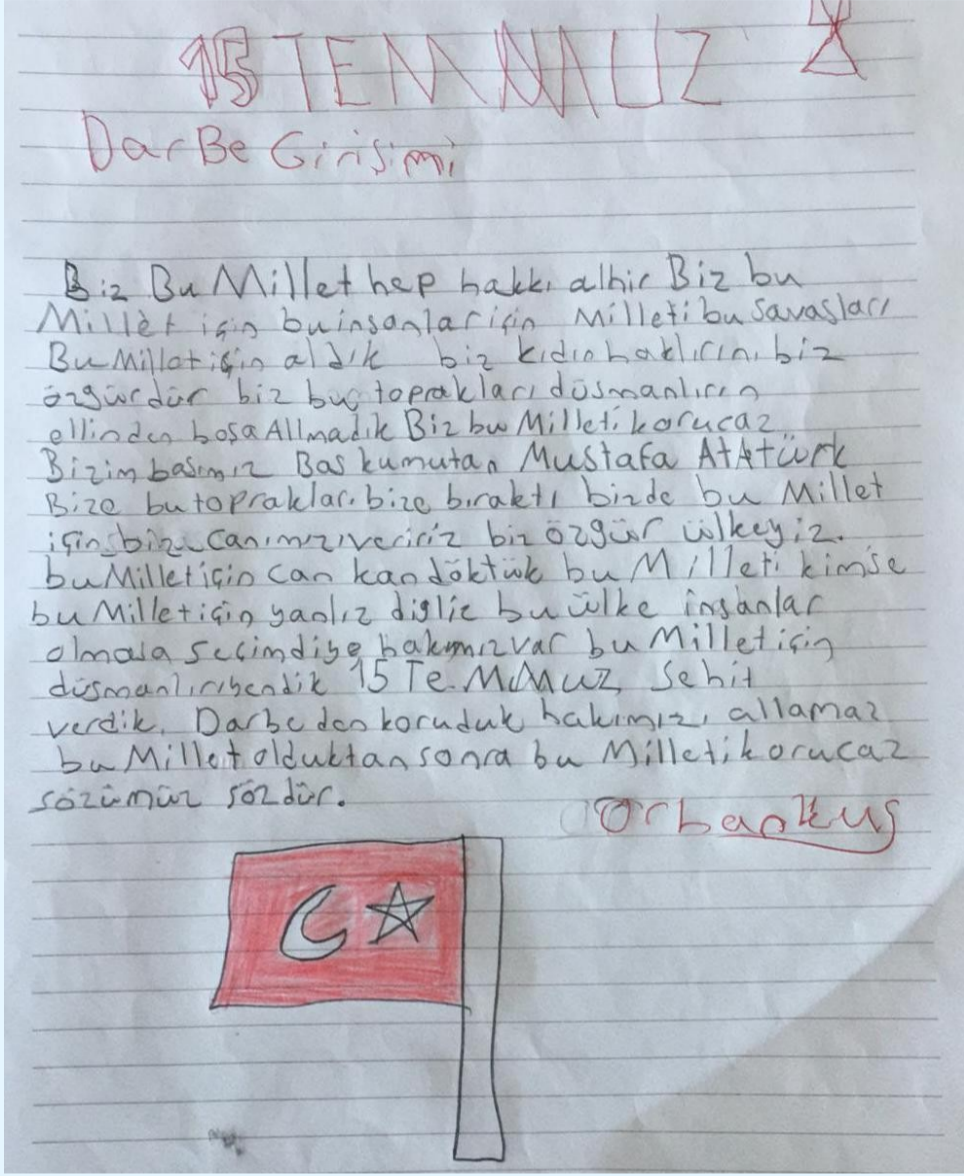 15 TEMMUZ
DarBe Girisimi
Biz Bu Millet hep hakkı alhir Biz bu
Millet için bu insanlar için Milleti bu savasları
Bu Millet için aldık biz kıdın haklırını biz
özgürdür biz bu toprakları düsmanlırın
ellinden boşa Allmadik Biz bu Milleti korucaz
Bizim basımız Bas kumutan Mustafa AtAtürk
Bize bu toprakları bize bıraktı bizde bu Millet
için biz canımızı veririz biz özgür ülkeyiz.
bu Millet için can kan döktük bu Milleti kimse
bu Millet için yanlız digliz bu ülke insanlar
olmasa secimdiye hakımız var bu Millet için
düsmanlırı yendik 15 Te MMuz sehit
verdik. Darbe den koruduk hakımızı allamaz
bu Millet olduktan sonra bu Milleti korucaz
sözümüz sözdür.
Orhan Kuş